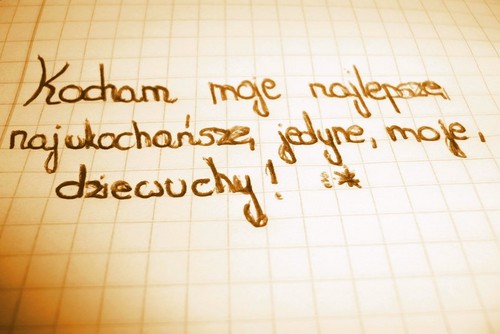 Kocham moje najlepsze,
najukochańsze, jedyne, moje,
dziewuchy! :*